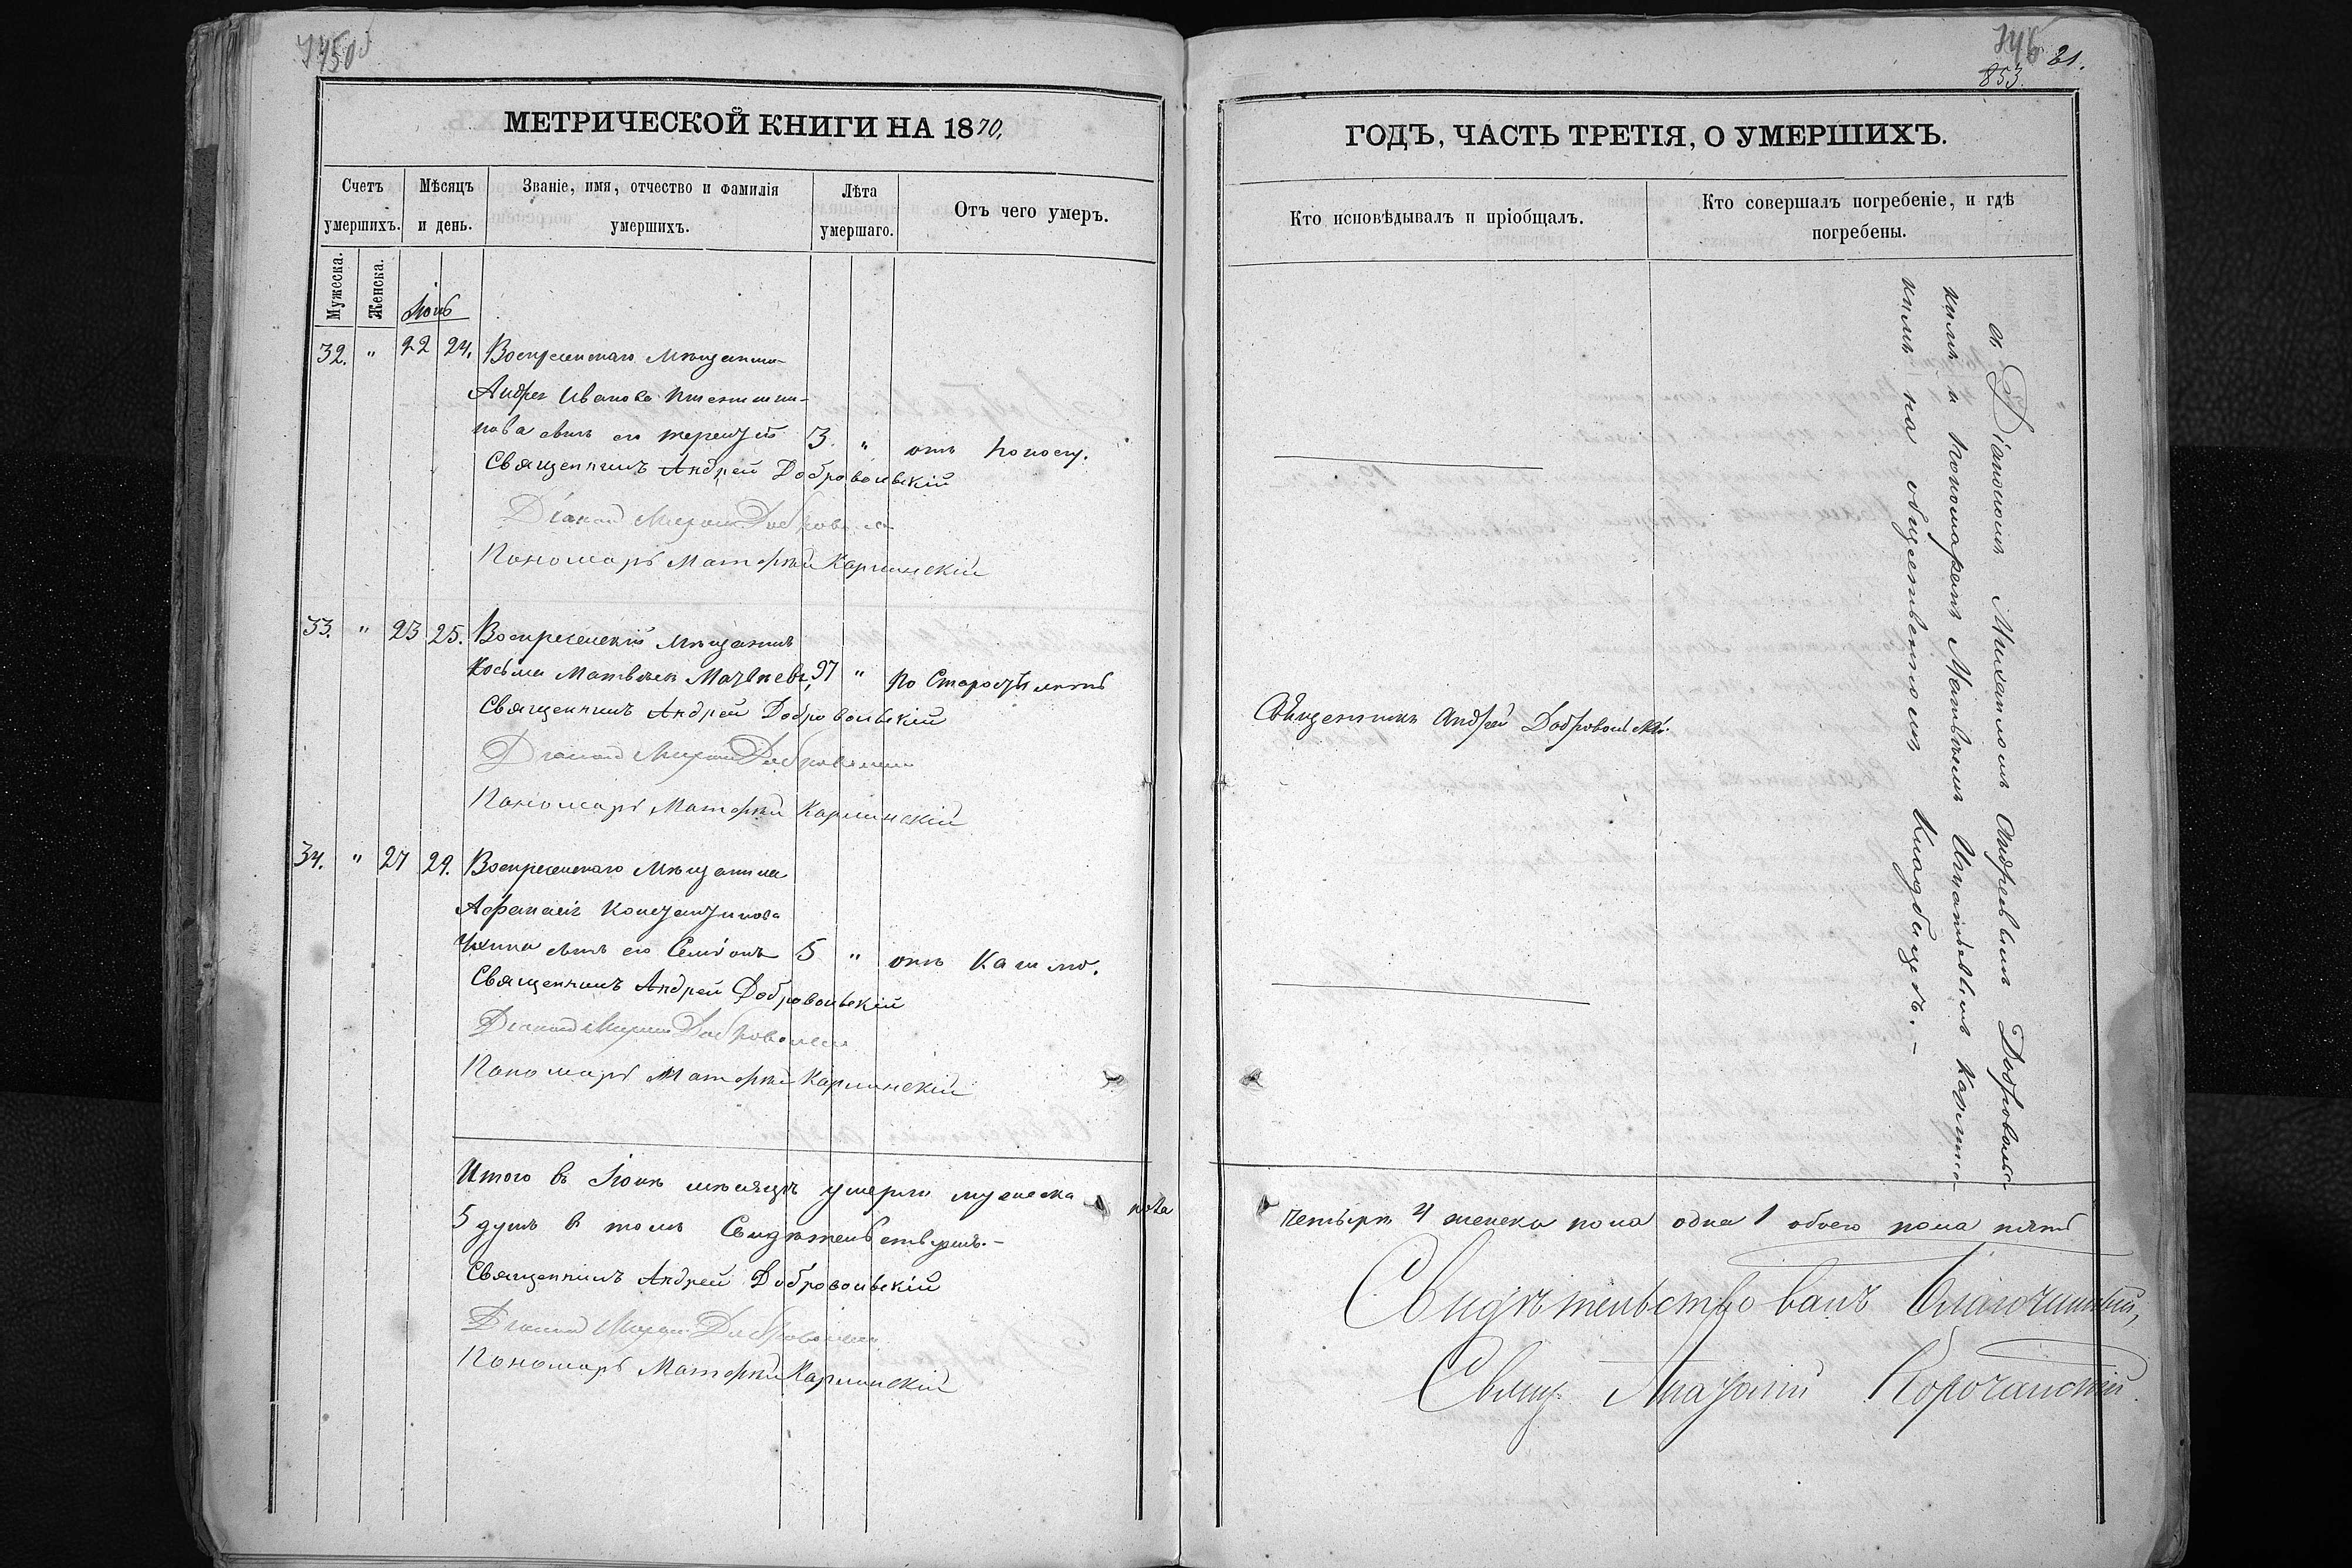 146
853.
21.
МЕТРИЧЕСКОЙ КНИГИ НА 1870,
Счетъ умершихъ.
Мѣсяцъ и день.
Званіе, имя, отчество и фамилія умершихъ.
Лѣта умершаго.
Отъ чего умеръ.
Мужеска.
Женска.
Іюнь
32. " 22 24. Воскресенскаго мѣщанина
Андрея Иванова
сынъ его Терентій 3 " отъ поносу.
Священникъ Андрей Добровольскій
Діаконъ Михаилъ Добровольскій
Пономарь Матфей Карпинскій
33. " 23 25. Воскресенскій мѣщанинъ
Косьма Матвѣевъ 97 " по старости лѣтъ
Священникъ Андрей Добровольскій
Діаконъ Михаилъ Добровольскій
Пономарь Матфей Карпинскій
34. " 27 29. Воскресенскаго мѣщанина
Афанасія Константинова
сынъ его Семіонъ 5 " отъ кашлю.
Священникъ Андрей Добровольскій
Діаконъ Михаилъ Добровольскій
Пономарь Матфей Карпинскій
Итого въ Іюнѣ мѣсяцѣ умерло мужеска пола
5 душъ в томъ
Священникъ Андрей Добровольскій
Діаконъ Михаилъ Добровольскій
Пономарь Матфей Карпинскій
ГОДЪ, ЧАСТЬ ТРЕТІЯ, О УМЕРШИХЪ.
Кто исповѣдывалъ и пріобщалъ.
Кто совершалъ погребеніе, и гдѣ
погребены.
Священникъ Андрей Добровольскій
съ Діакономъ Михаиломъ Андреевымъ Добровольс-
кимъ и Пономаремъ Матвѣемъ Игнатьевымъ Карпинс-
кимъ на общественномъ Кладбищѣ.-
четыре 4 женска пола одна 1 обоего пола пять
Свидѣтельствовалъ Благочинный,
Свящ. Анатолій Корочанскій.